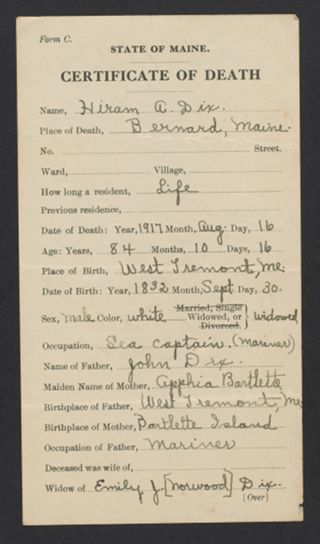 Form C.
STATE OF MAINE.
CERTIFICATE OF DEATH
Name, Hiram A. Dix.
Place of Death, Bernard, Maine.
No. Street.
Ward, Village,
How long a resident, Life
Previous residence,
Date of Death: Year, 1917 Month, Aug. Day, 16
Age: Years, 84 Months, 10 Days, 16
Place of Birth, West Tremont, Me.
Date of Birth: Year, 1832 Month, Sept Day, 30.
Married, Single
Sex, Male Color, white Widowed, or widowed
Divorced.
Occupation, Sea Captain. (Mariner)
Name of Father, John Dix.
Maiden Name of Mother, Apphia Bartlett
Birthplace of Father, West Tremont, Me
Birthplace of Mother, Bartlette Island
Occupation of Father, Mariner
Deceased was wife of,
Widow of Emily J. [Norwood] Dix.
[Over]